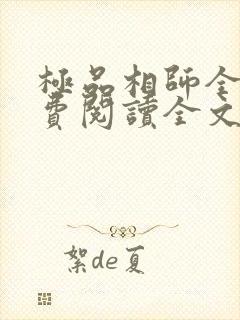 極品相師全
費閱讀全文
絮de夏